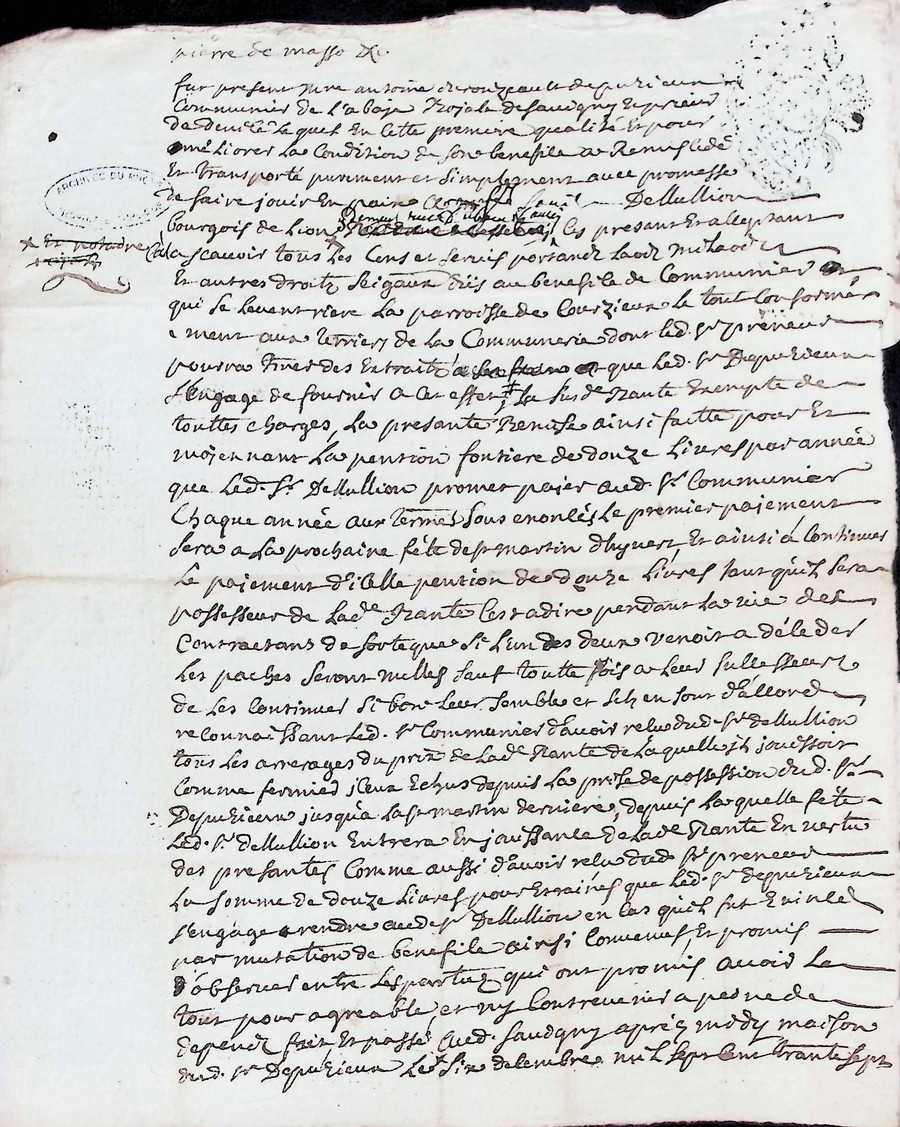 pierre de masso
fut present Mre antoine de rouzeault depuzieux
Communier de L'abaje Royale de savigny Et prieur
de deneile Lequel En Cette premiere qualité Et pour
ameliorer La Condition de son benefile a Remis Cédé
Et Transporté purement et simplement avec promesse
de faire jouir En paix Dellullion
bourgois de Lion Ces presant Et alleptant
ARCHIVES DU RHONE
Et notadre
a scavoir tous Les Cens et servis portant Laods Milaods
Et autres droits seigaux dus au benefile de Communier
qui se Levent riere La parroisse de Courzieux Le tout Conformé
ment aux terriers de La Communerie dont Led. Sr preneur
pourra tirer des Extraits que Led. Sr Depuzieux
s'Engage de fournir a Cet effet La susde Rante Exempte de
touttes Charges, La presante Remise ainsi faitte pour Et
mojennant La pention fontiere de douze Livres par année
que Led. Sr. Dellullion promet paier aud. Sr Communier
Chaque année aux termes sous enonlés Le premier paiement
sera a La prochaine féte de st martin d'hyvert Et ainsi á Continuer
Le paiement d'iCelle pention de douze Livres tant qu'il sera
possesseur de Lade Rante C'est a dire pendant La vie des
Contractans de sorte que si L'un des deux venoit a déleder
Les paches seront nulles sauf toutte fois a Leur sullesseurs
de Les Continuer si bon Leur semble et s'ils en sont d'allord
reConnaissant Led. Sr Communier d'avoir relu dud. Sr dellullion
tous Les arrerages du prix de Lade Rante de Laquelle il jouissoit
Comme fermier iCeux Echus depuis La prise de possession dud. Sr
Depuzieux jusqu'a La st martin derniere, depuis La quelle féte
Led. Sr dellullion Entrera En jouissanle de Lade Rante En vertu
des presantes Comme aussi d'avoir relu dud. Sr preneur
La somme de douze Livres pour Etraines que Led. Sr depuzieux
s'engage rendre aud Sr Dellullion en Cas qu'il fut Evinlé
par mutation de benefile ainsi Convenus, Et promis
d'observer entre Les parties qui ont promis avoir Le
tout pour agreable, et n'y Contrevenir a peine de
depends fait Et passé aud. Savigny aprés midy maison
dud. Sr Depuzieux Le six delembre mil sept Cent trante sept